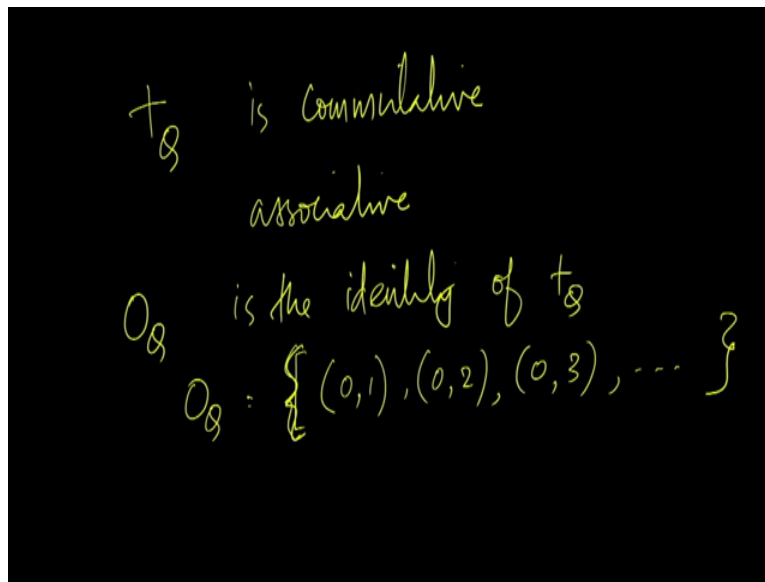 +_Q is commutative
associative
0_Q is the identity of +_Q
0_Q = { (0,1), (0,2), (0,3), .... }